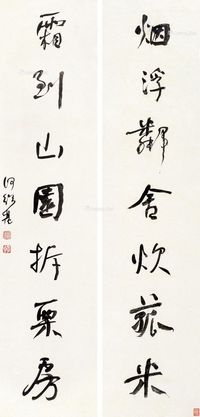 烟浮鄰舍炊菰米
霜到山園拆栗房
何紹基